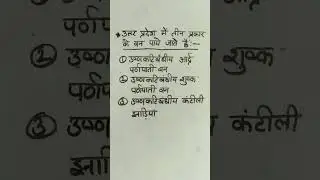 * उत्तर प्रदेश में तीन प्रकार
के वन पाये जाते हैं:—
① उष्णकटिबंधीय आर्द्र
पर्णपाती वन
② उष्णकटिबंधीय शुष्क
पर्णपाती वन
③ उष्णकटिबंधीय कंटीली
झाड़ियां